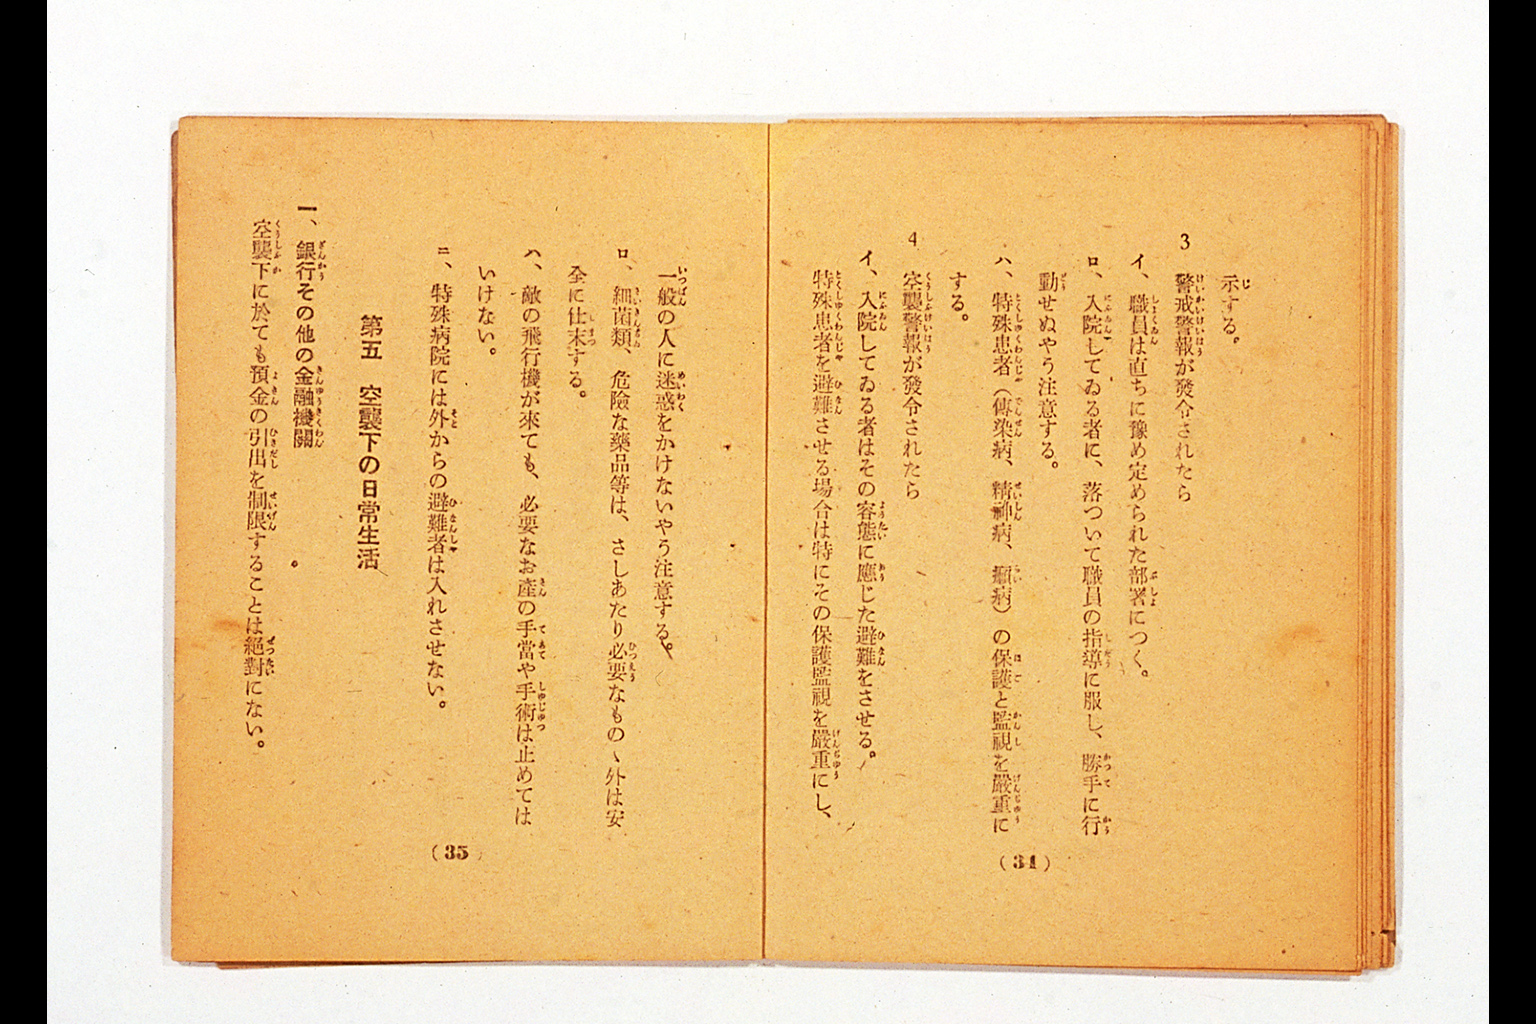 示する。
3 警戒警報が發令されたら
イ、職員は直ちに豫め定められた部署につく。
ロ、入院してゐる者に、落ついて職員の指導に服し、勝手に行
動せぬやう注意する。
ハ、特殊患者（傳染病、精神病、癩病）の保護と監視を嚴重に
する。
4 空襲警報が發令されたら
イ、入院してゐる者はその容態に應じた避難をさせる。
特殊患者を避難させる場合は特にその保護監視を嚴重にし、
（34）
一般の人に迷惑をかけないやう注意する。
ロ、細菌類、危險な藥品等は、さしあたり必要なものゝ外は安
全に仕末する。
ハ、敵の飛行機が來ても、必要なお産の手當や手術は止めては
いけない。
ニ、特殊病院には外からの避難者は入れさせない。
第五　空襲下の日常生活
一、銀行その他の金融機關
空襲下に於ても預金の引出を制限することは絕對にない。
（35）